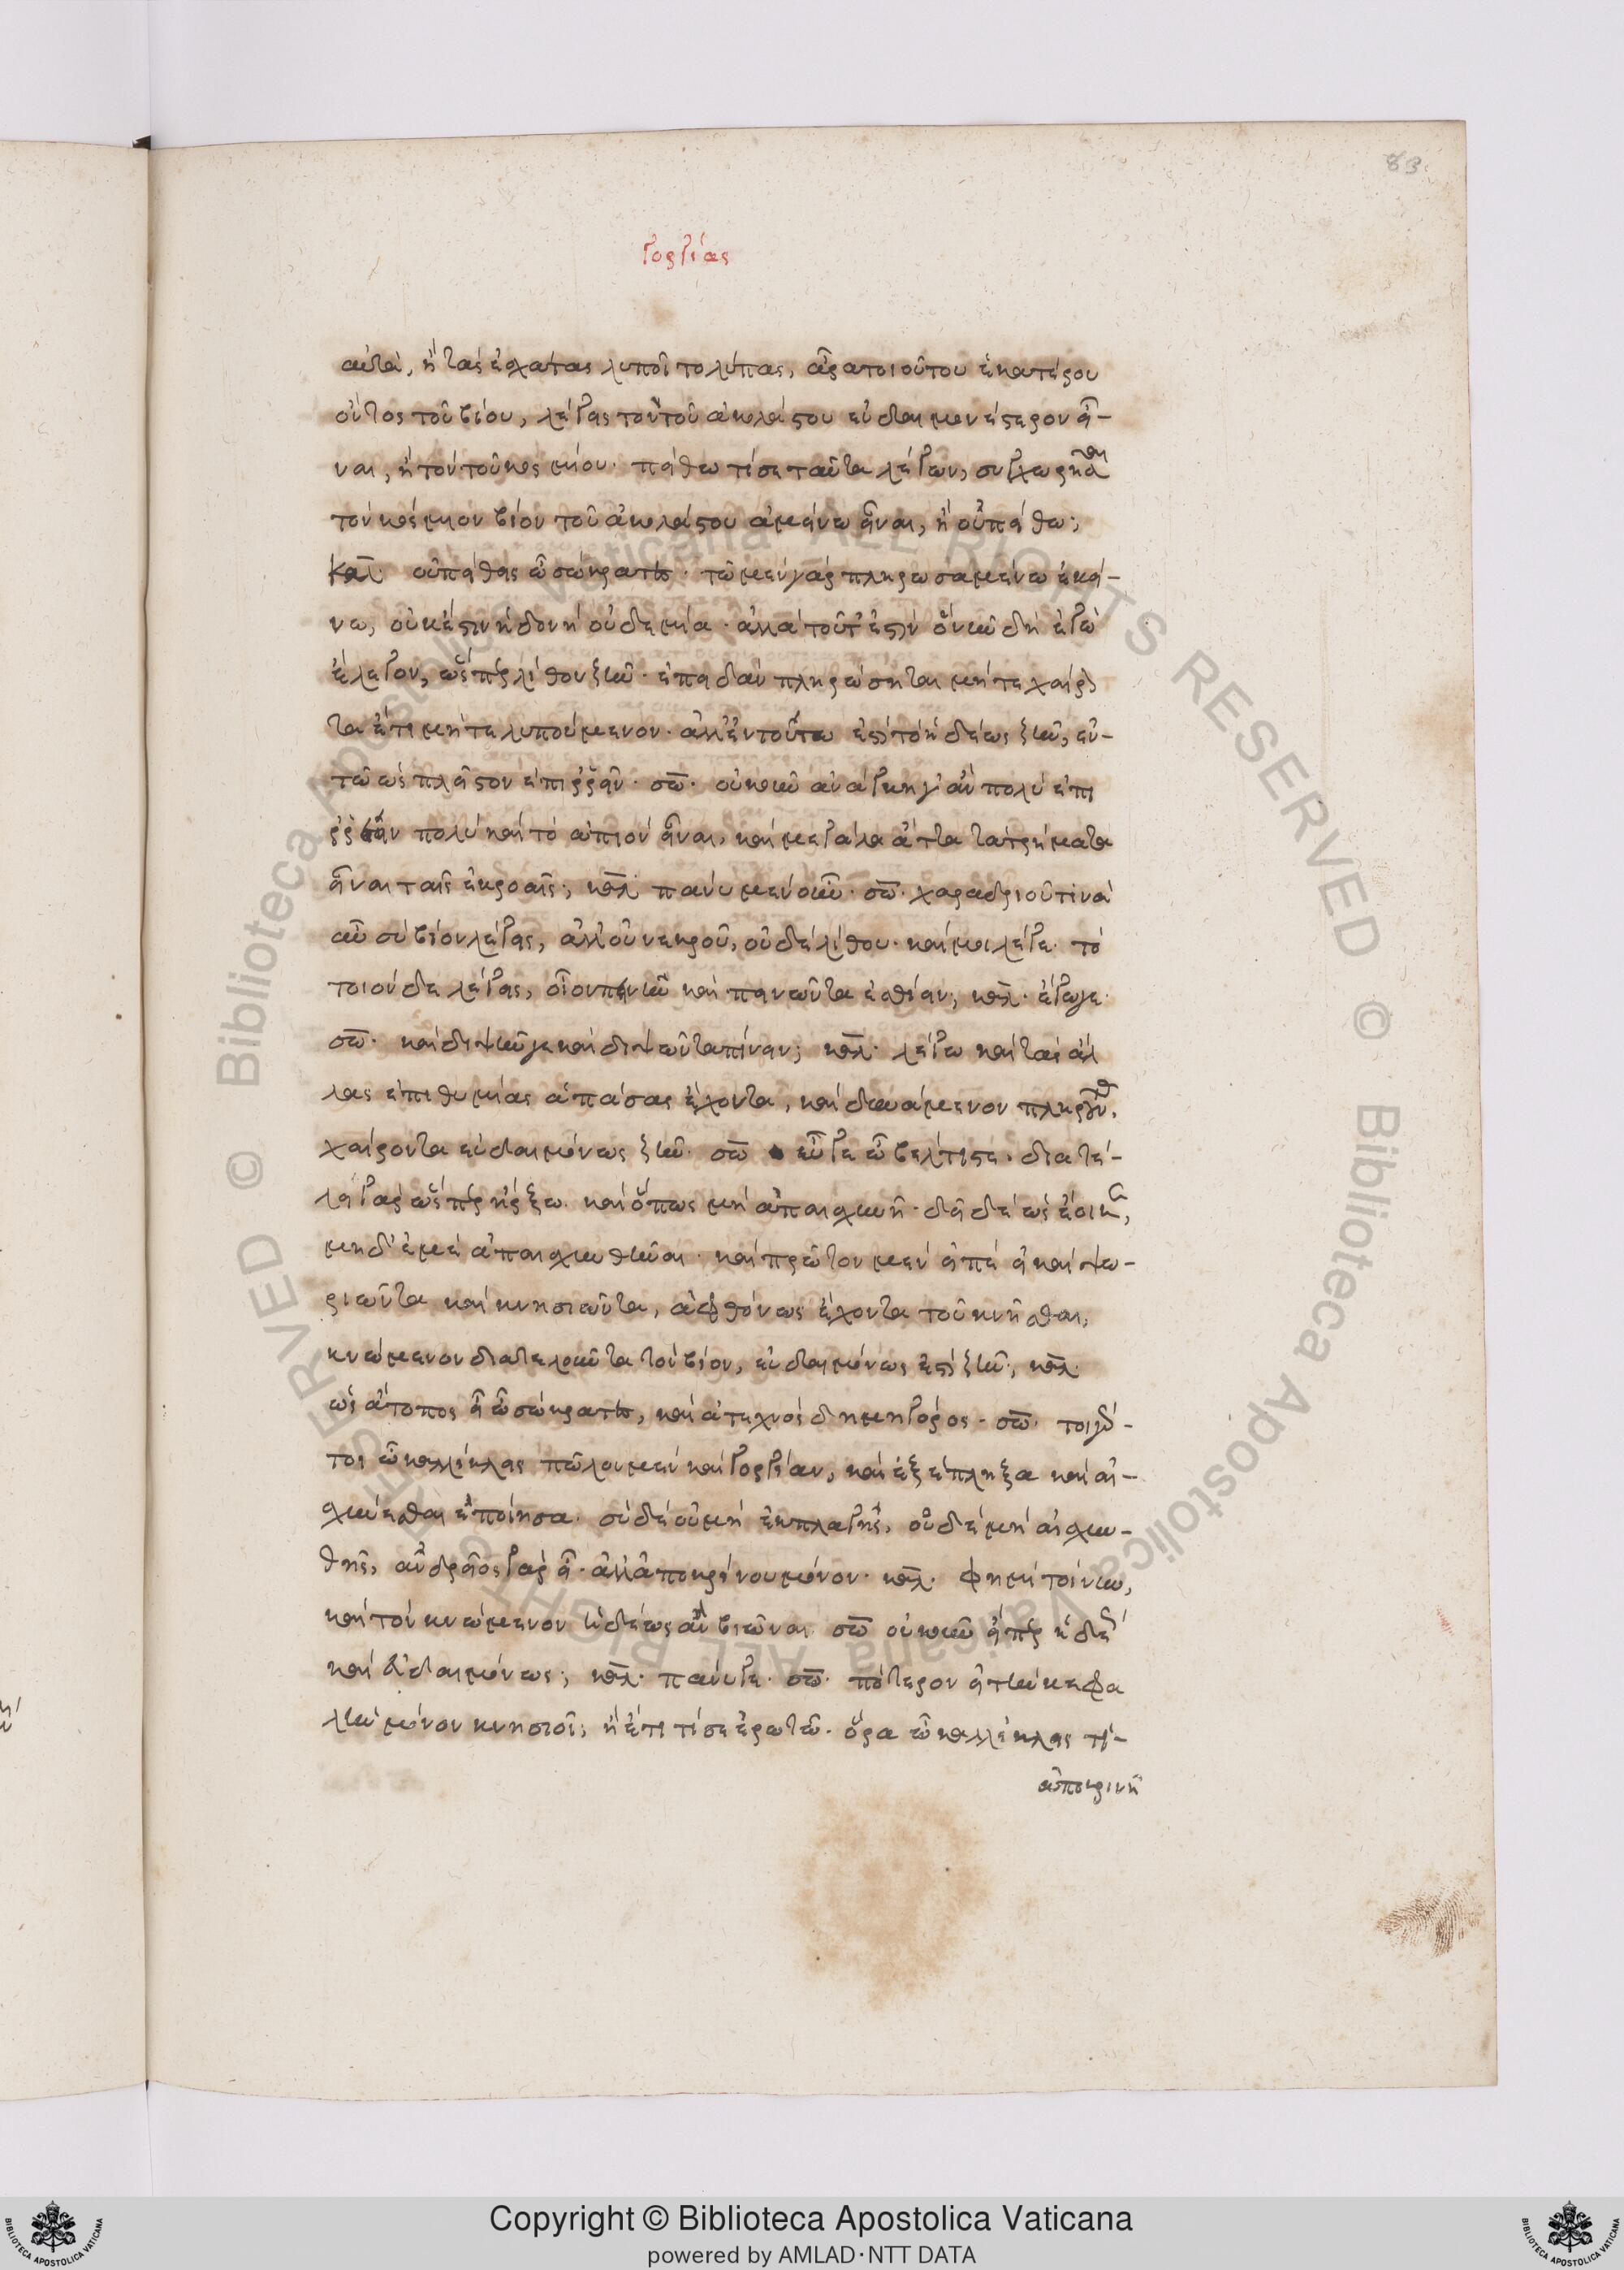 83
Γοργίας
αὐτά, ἢ τὰς ἐσχάτας λυποῖτο λύπας, ἆρα τοιούτου ἑκατέρου
ὄντος τοῦ βίου, λέγεις τὸν τοῦ ἀκολάστου εὐδαιμονέστερον εἶ-
ναι, ἢ τὸν τοῦ κοσμίου· πείθω τί σε ταῦτα λέγων, συγχωρῆσαι
τὸν κόσμιον βίον τοῦ ἀκολάστου ἀμείνω εἶναι, ἢ οὐ πείθω;
καλ. οὐ πείθεις ὦ σώκρατες· τῷ μὲν γὰρ πληρωσαμένω ἐκεί-
νω, οὐκέτ' ἐστὶν ἡδονὴ οὐδεμία· ἀλλὰ τοῦτ' ἐστὶν ὃ νῦν δὴ ἐγὼ
ἔλεγον, ὥσπερ λίθον ζῆν· ἐπειδὰν πληρώσηται μήτε χαίρον
τα ἔτι μήτε λυπούμενον· ἀλλ' ἐν τούτω ἐστὶ τὸ ἡδέως ζῆν, ἐν
τῶ ὡς πλεῖστον ἐπιρρεῖν· σω. οὐκοῦν ἀνάγκη γ' ἂν πολὺ ἐπι
ρρέῃ πολὺ καὶ τὸ ἀπιὸν εἶναι, καὶ μεγάλα ἄττα τὰ τρήματα
εἶναι ταῖς ἐκροαῖς; καλ. πάνυ μὲν οὖν· σω. χαραδριοῦ τινὰ
αὖ σὺ βίον λέγεις, ἀλλ' οὐ νεκροῦ, οὐδὲ λίθου· καί μοι λέγε· τὸ
τοιόνδε λέγεις, οἷον πεινῆν καὶ πεινῶντα ἐσθίειν; καλ. ἔγωγε·
σω. καὶ διψῆν γε καὶ διψῶντα πίνειν; καλ. λέγω καὶ τὰς ἄλ
λας ἐπιθυμίας ἁπάσας ἔχοντα, καὶ δυνάμενον πληροῦντα,
χαίροντα εὐδαιμόνως ζῆν· σω. εὖγε ὦ βέλτιστε· διατέ-
λει γὰρ ὥσπερ ἤρξω καὶ ὅπως μὴ ἀπαισχυνῆ· δεῖ δὲ ὡς ἔοικε,
μηδ' ἐμὲ ἀπαισχυνθῆναι· καὶ πρῶτον μὲν εἰπὲ εἰ καὶ ψω-
ριῶντα καὶ κνησιῶντα, ἀφθόνως ἔχοντα τοῦ κνῆσθαι,
κνώμενον διατελοῦντα τὸν βίον, εὐδαιμόνως ἐστὶ ζῆν; καλ.
ὡς ἄτοπος εἶ ὦ σώκρατες, καὶ ἀτεχνῶς δημηγόρος· σω. τοιγάρ-
τοι ὦ καλλίκλεις πῶλον μὲν καὶ Γοργίαν, καὶ ἐξέπληξα καὶ αἰ-
σχύνεσθαι ἐποίησα· σὺ δὲ οὐ μὴ ἐκπλαγῆς, οὐδὲ μὴ αἰσχυν-
θῆς, ἀνδρεῖος γὰρ εἶ· ἀλλ' ἀποκρίνου μόνον· καλ. φημὶ τοίνυν,
καὶ τὸν κνώμενον ἡδέως ἂν βιῶναι σω. οὐκοῦν εἴπερ ἡδέως
καὶ εὐδαιμόνως; καλ. πάνυ γε· σω. πότερον εἰ τὴν κεφα
λὴν μόνον κνησιοῖ; ἢ ἔτι τί σε ἐρωτῶ· ὅρα ὦ καλλίκλεις τί-
ἀποκρινῆ
Copyright © Biblioteca Apostolica Vaticana
powered by AMLAD·NTT DATA